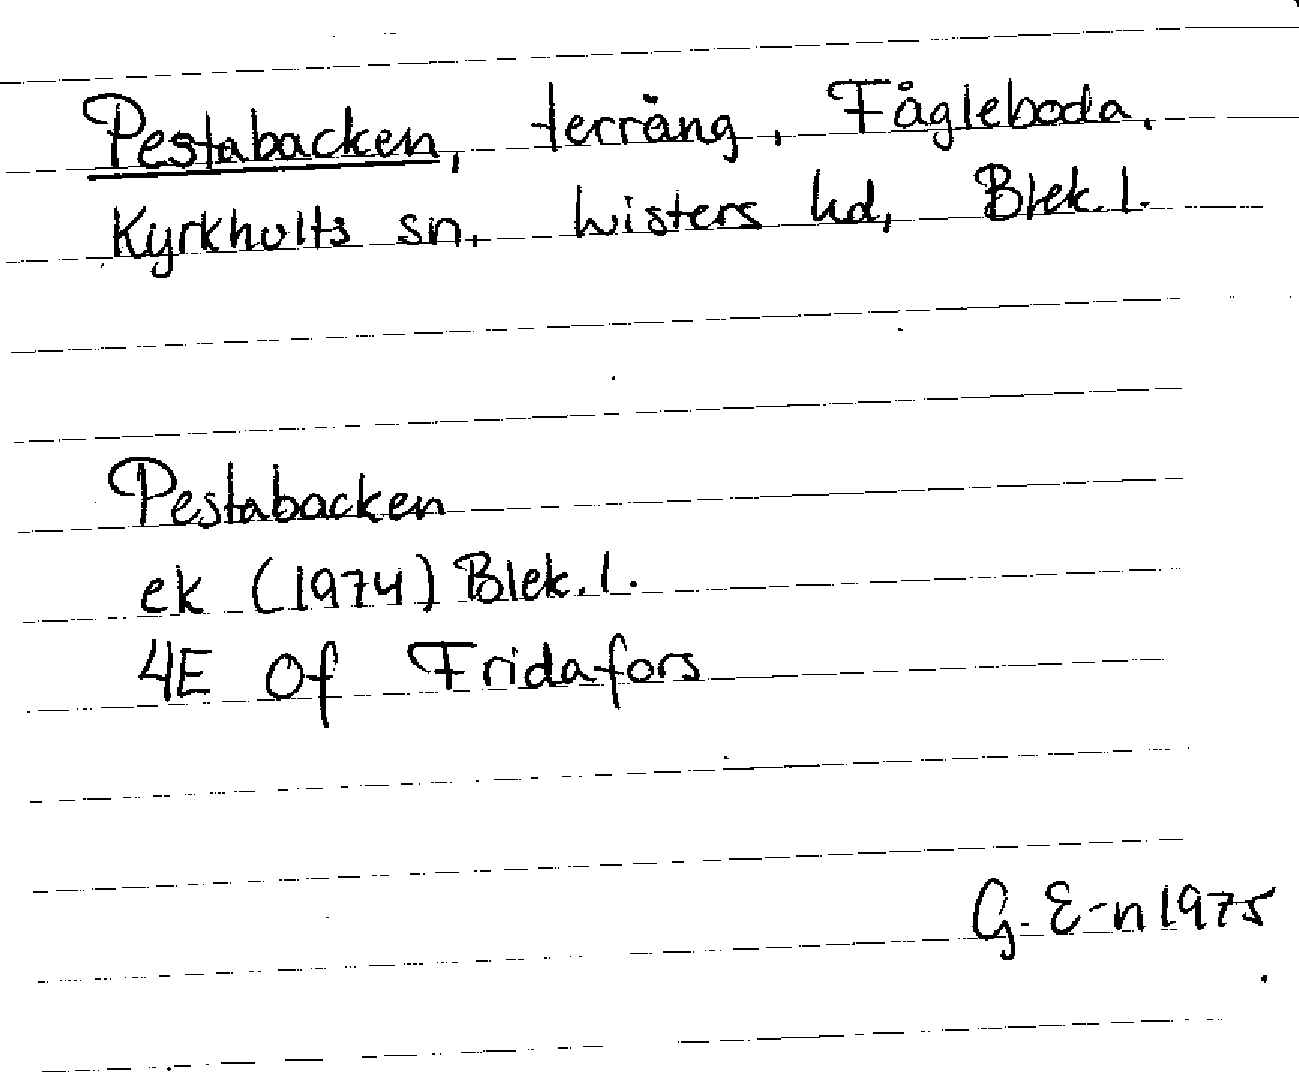 Pestabacken, terräng, Fågleboda,
Kyrkhults sn. Listers hd, Blek. l.
Pestabacken
ek (1974) Blek. l.
4E 0f Fridafors
G. E-n 1975